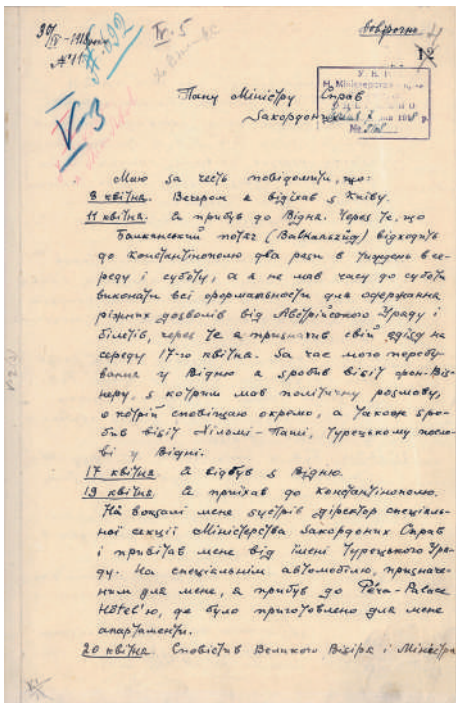 30/IV-1918 року
№ 11
№ 692
IV-5
V-3
довірочно
Пану Міністру Справ
Закордонних
У. Н. Р.
Н. Міністерство
Мою за честь повідомити, що:
8 квітня. Вечером я відїхав з Київу.
11 квітня. Я прибув до Відня. Через те, що
Балканський потяг (Balkanzug) відходить
до Константінополю два рази в тиждень в се-
реду і суботу, а я не мав часу до суботи
виконати всі формальности для одержання
ріжних дозволів від Австрійського Уряду і
білєтів, через те я призначив свій відїзд на
середу 17-го квітня. За час мого перебу-
вання у Відню я зробив візіт фон-Віз-
неру, з котрим мав політичну розмову,
о котрій сповіщаю окремо, а також зро-
бив візіт Хільмі-Паші, турецькому посло-
ві у Відні.
17 квітня. Я відбув з Відню.
19 квітня. Я приїхав до Константінополю.
На вокзалі мене зустрів Діректор спеціаль-
ної секції Міністерства Закордоних Справ
і привітав мене від імені Турецького Уря-
ду. На спеціальнім автомобілю, призначе-
ним для мене, я прибув до Péra-Palace
Hôtel'ю, де було приготовлено для мене
апартаменти.
20 квітня. Сповістив Великого Візіра і Міністра